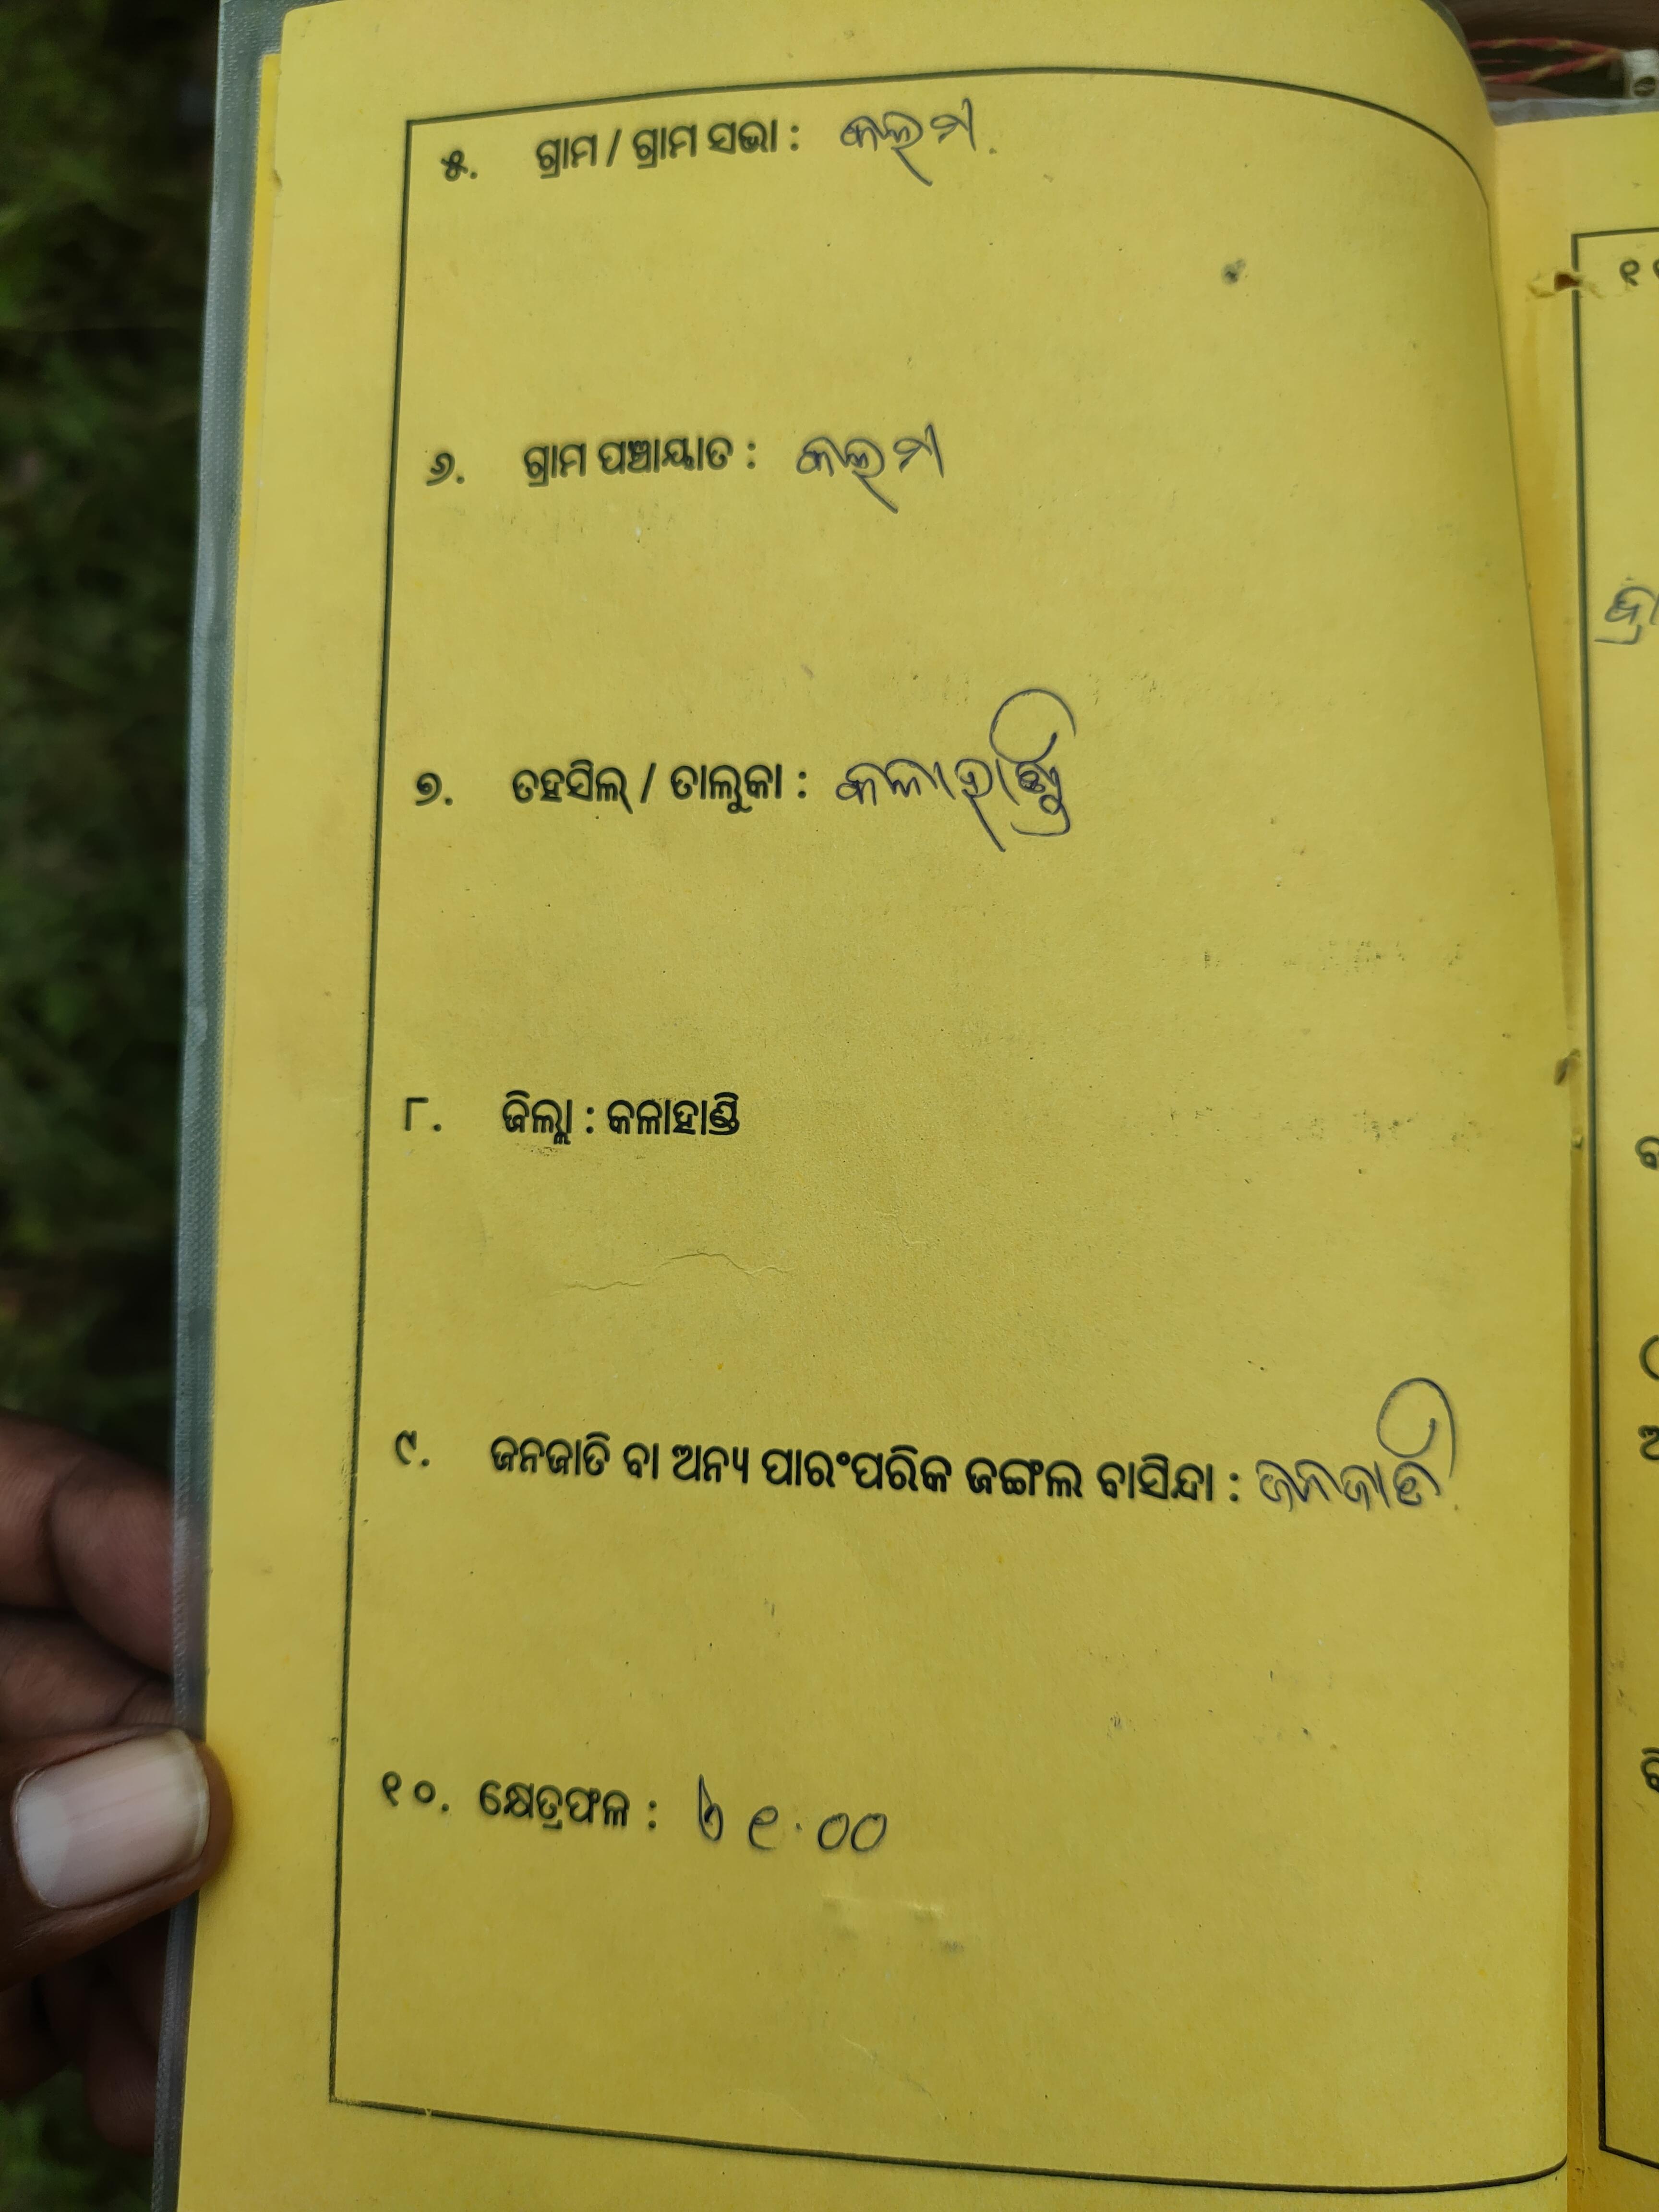 ୫. ଗ୍ରାମ / ଗ୍ରାମ ସଭା : କଲମ.
୬. ଗ୍ରାମ ପଞ୍ଚାୟାତ : କଲମ
୭. ତହସିଲ୍ / ତାଲୁକା : କଳାହାଣ୍ଡି
୮. ଜିଲ୍ଲା : କଳାହାଣ୍ଡି
୯. ଜନଜାତି ବା ଅନ୍ୟ ପାରଂପରିକ ଜଙ୍ଗଲ ବାସିନ୍ଦା : ଜନଜାତି
୧୦. କ୍ଷେତ୍ରଫଳ : ୭୧.୦୦